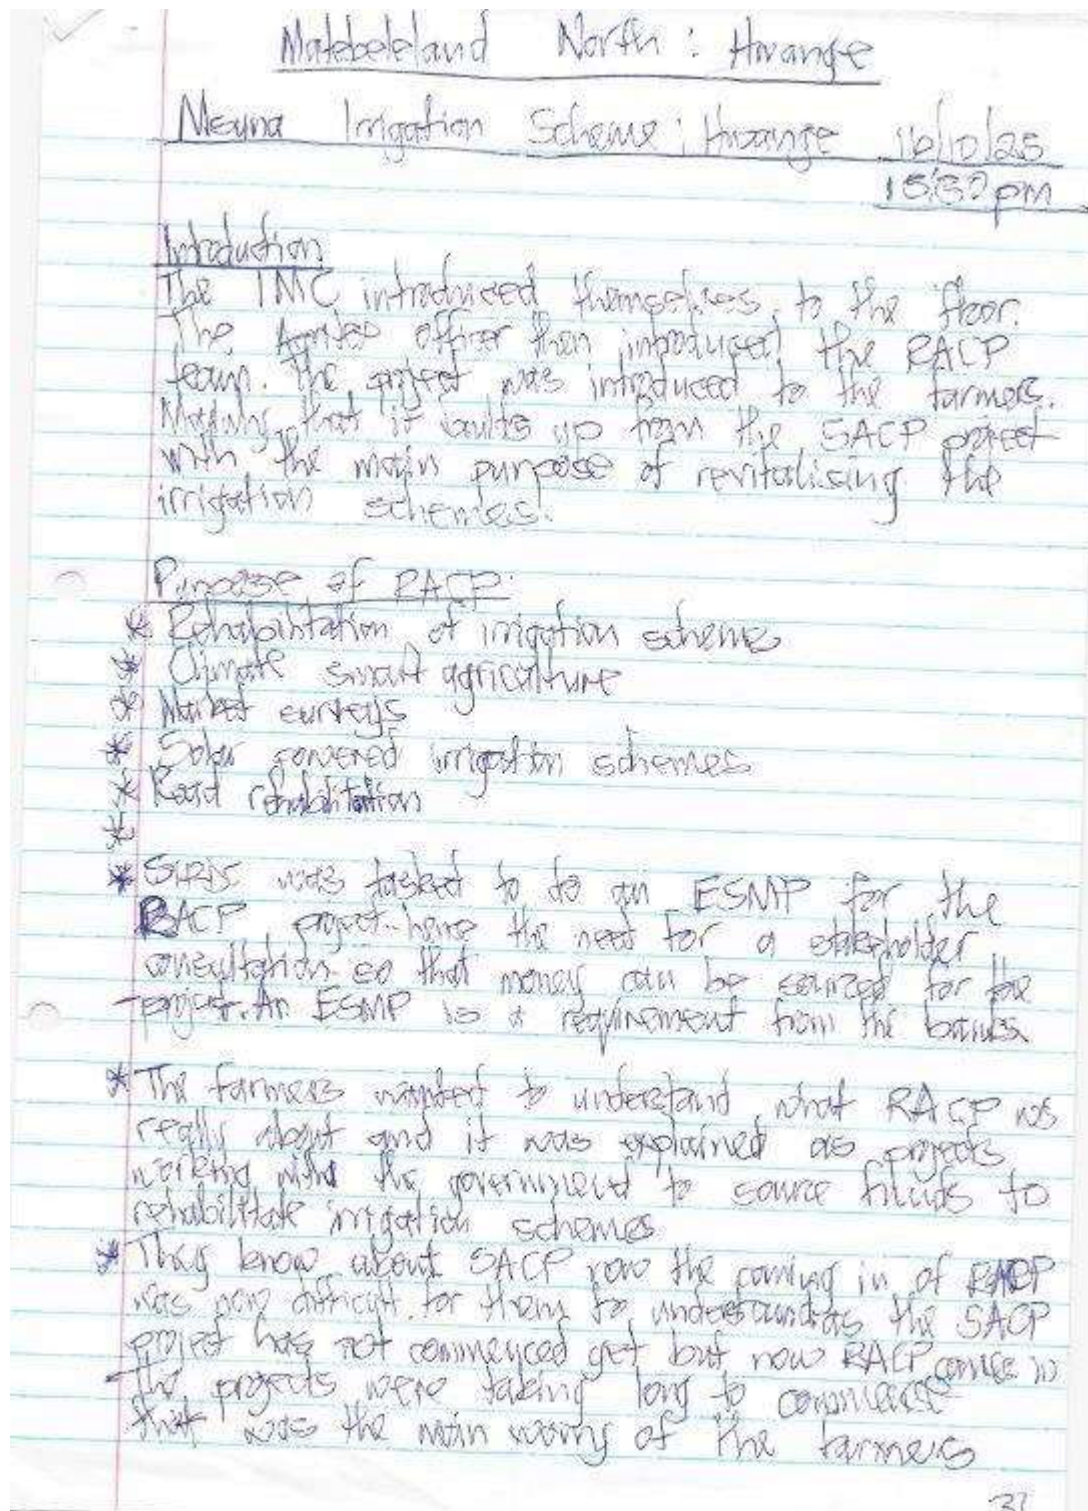 Matebeleland North : Hwange
Msuna Irrigation Scheme : Hwange 16/10/25
pm
Introduction
The IMC introduced themselves to the floor.
The officer then introduced the RACP
team. The project was introduced to the farmers.
that it up from the SACP project
with the main purpose of revitalising the
irrigation schemes.
Purpose of RACP:
* Rehabilitation of irrigation schemes
* Climate smart agriculture
* Market surveys
* Solar powered irrigation schemes
* Road rehabilitation
*
* was tasked to do an ESMP for the
RACP project hence the need for a stakeholder
consultation so that money can be sourced for the
project. An ESMP is a requirement from the banks
* The farmers wanted to understand what RACP was
really about and it was explained as projects
working with the government to source funds to
rehabilitate irrigation schemes
* They know about SACP now the coming in of RACP
was now difficult for them to understand as the SACP
project has not commenced yet but now RACP comes in
- The projects were taking long to commence
that was the main worry of the farmers